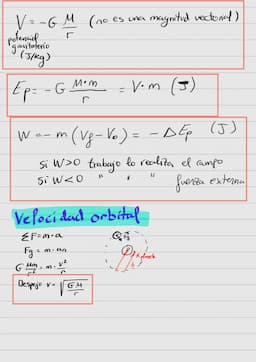 V = -G M/r (no es una magnitud vectorial)
potencial
gravitatorio
(J/kg)
Ep = -G M·m/r = V·m (J)
W = -m (Vf - Vo) = -ΔEp (J)
Si W>0 trabajo lo realiza el campo
Si W<0 " " " fuerza externa
Velocidad orbital
ΣF = m·a
Fg = m·an
G Mm/r² = m·v²/r
Despejo v = √(G M/r)